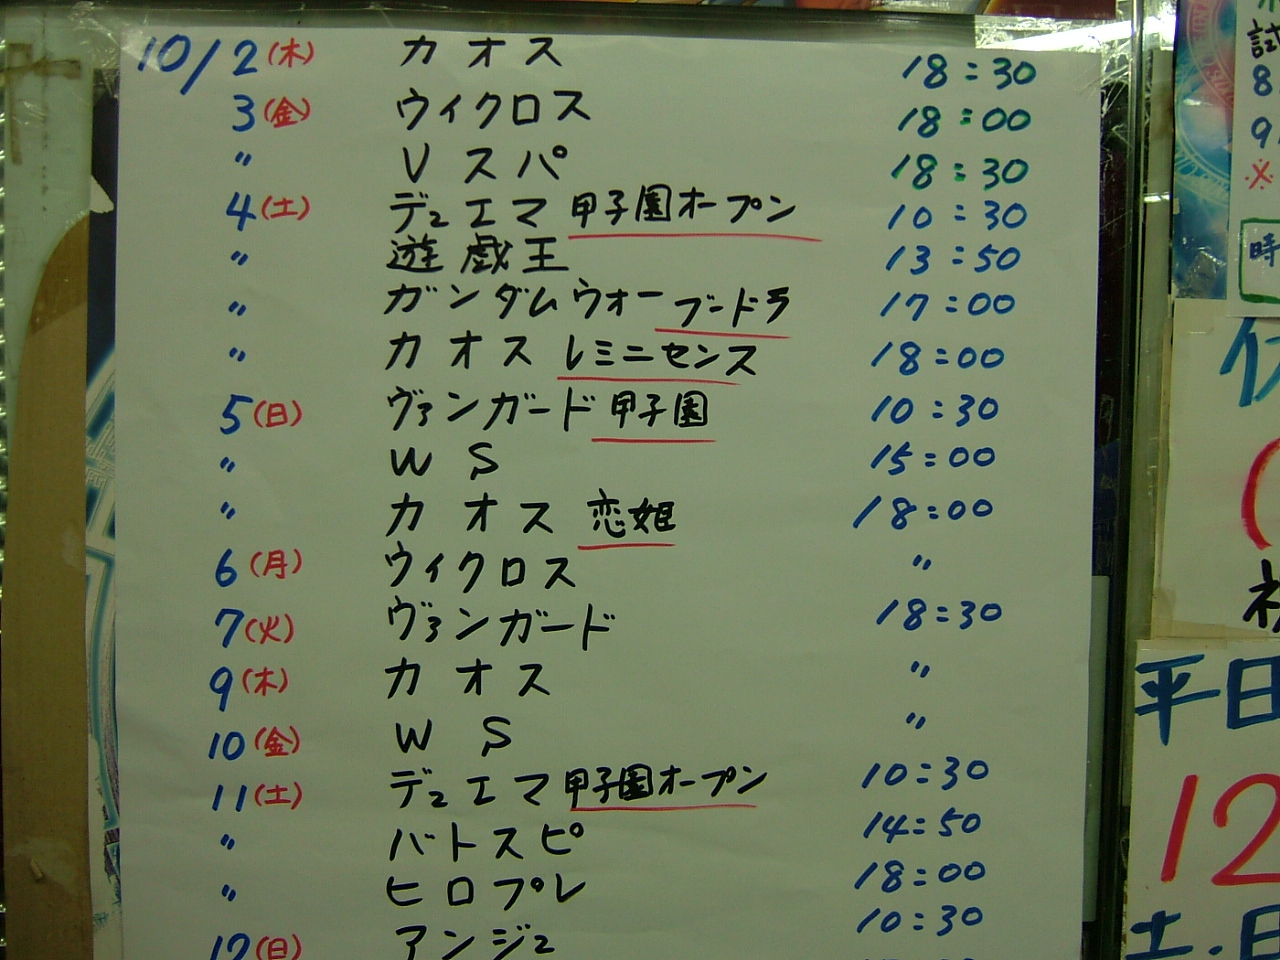 10/2(木) カオス 18:30
3(金) ウィクロス 18:00
〃 Vスパ 18:30
4(土) デュエマ 甲子園オープン 10:30
〃 遊戯王 13:50
〃 ガンダムウォー ブードラ 17:00
〃 カオス レミニセンス 18:00
5(日) ヴァンガード 甲子園 10:30
〃 WS 15:00
〃 カオス 恋姫 18:00
6(月) ウィクロス 〃
7(火) ヴァンガード 18:30
9(木) カオス 〃
10(金) WS 〃
11(土) デュエマ 甲子園オープン 10:30
〃 バトスピ 14:50
〃 ヒロプレ 18:00
12(日) アンジュ 10:30
試
8
9
※
時
平日
12
土・日